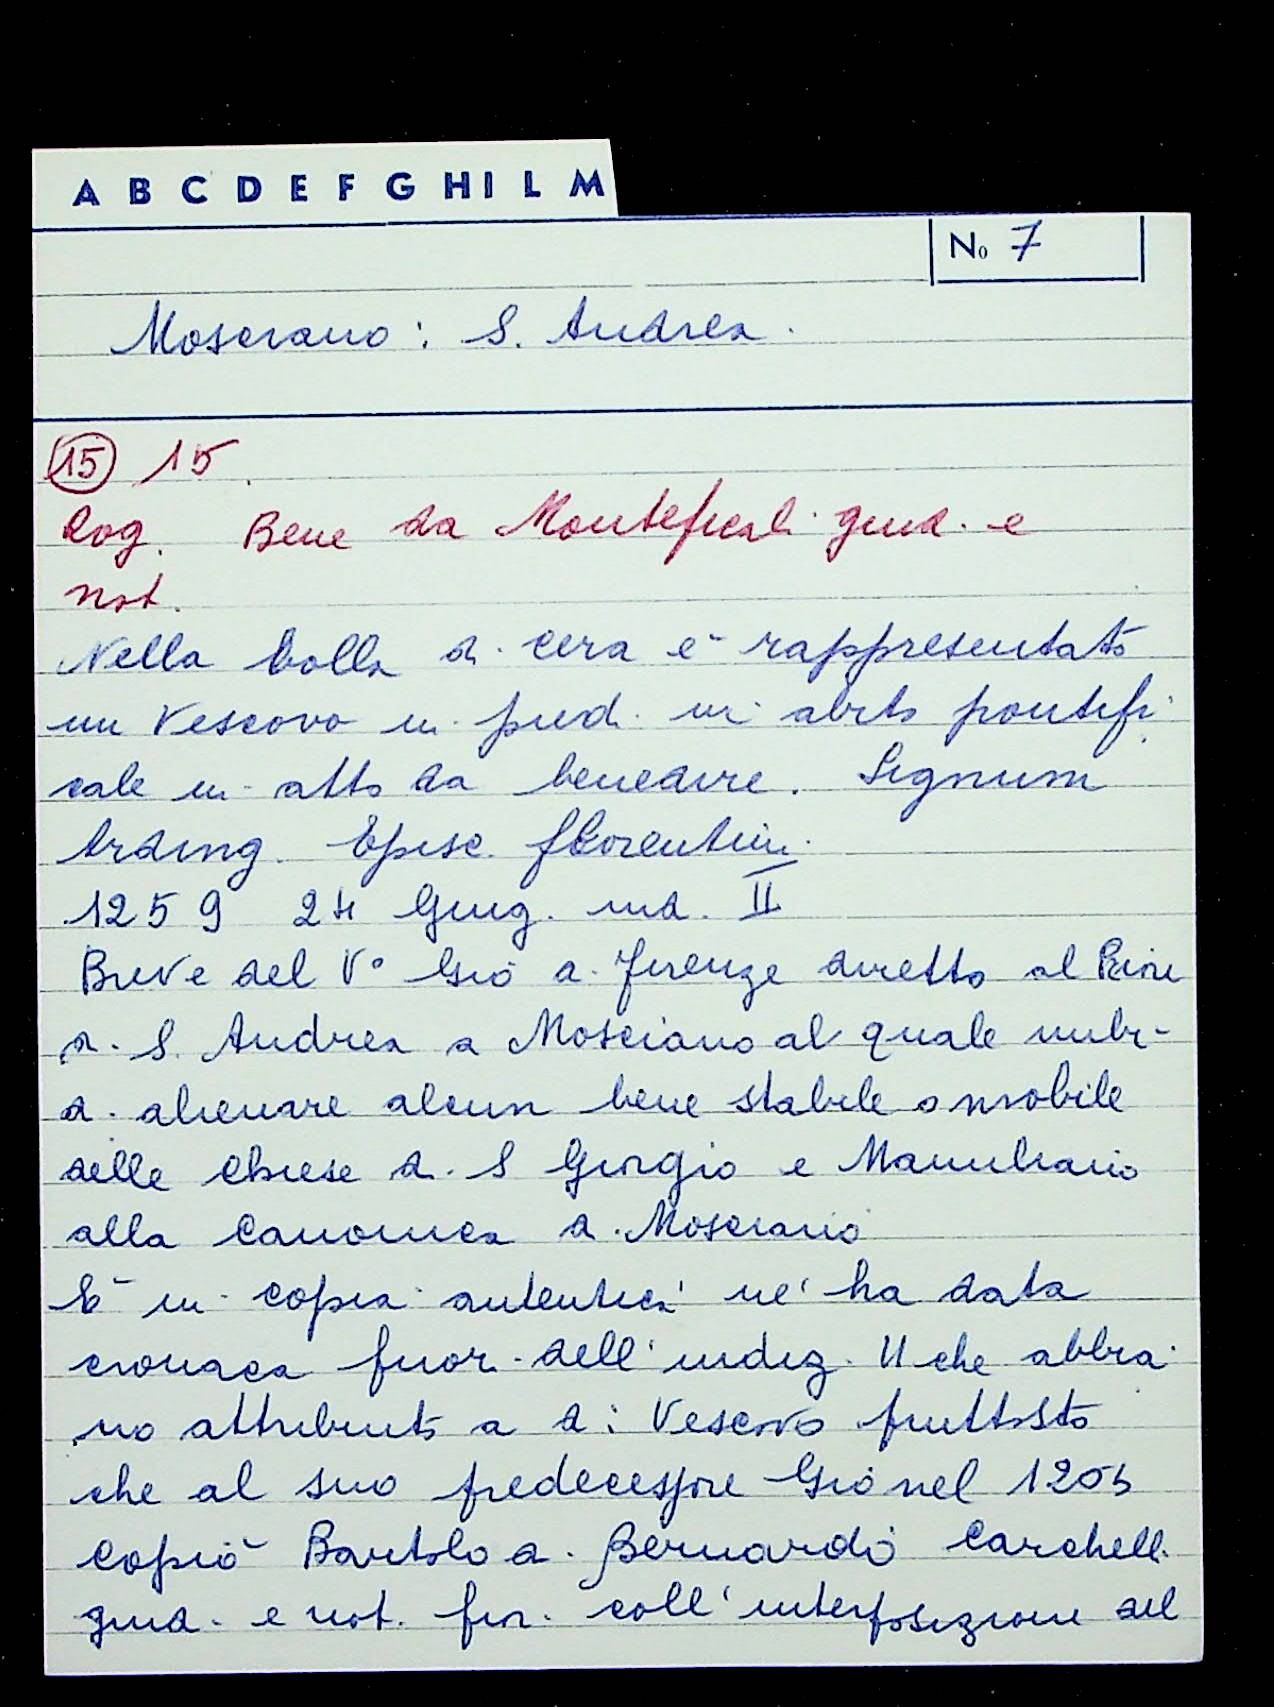 A B C D E F G H I L M
No 7
Mosciano: S. Andrea.
15 15.
Rog. Bene da Monteficali giud. e
not.
Nella bolla di cera è rappresentato
un Vescovo in piedi in abito pontifi
cale in atto da benedire. Signum
Arding. Episc. florentin.
1259 24 Giug. ind. II
Breve del V° Gio di Firenze diretto al Priore
di S. Andrea a Mosciano al quale inibi-
di alienare alcun bene stabile o mobile
delle chiese di S Giorgio e Mamiliano
alla Canonica di Mosciano
È in copia autentica nè ha data
cronaca fuor dell'indiz. II che abbia
mo attribuito a di: Vescovo piuttosto
che al suo predecessore Gio nel 1205
Copiò Bartolo di Bernardo Carchelli
giud. e not. fior. coll'interposizione del